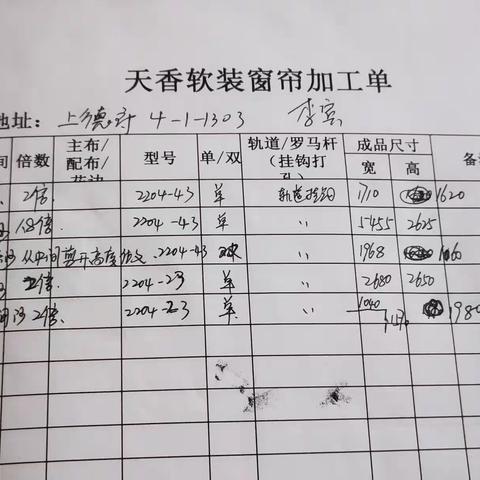 天香软装窗帘加工单
地址: 上德府 4-1-1303
间 倍数 主布/配布/花边 型号 单/双 轨道/罗马杆（挂钩打孔） 成品尺寸 宽 高 备
2倍 2204-43 单 轨道挂钩 1710 1620
1.8倍 2204-43 单 〃 5455 2625
从中间剪开高度 2204-43 双 〃 1968 1060
2倍 2204-23 单 〃 2680 2650
2倍 2204-23 单 〃 1040 1980